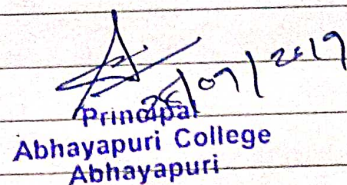 25/07/2019
Principal
Abhayapuri College
Abhayapuri